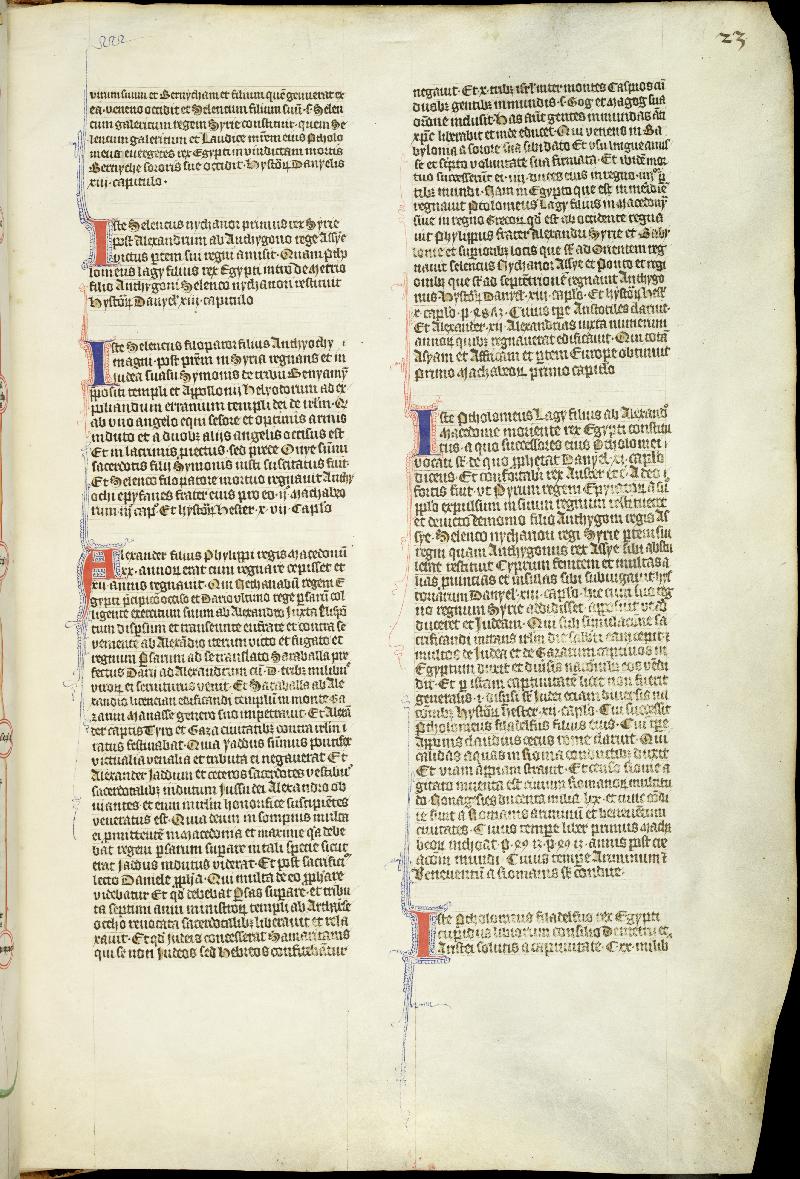 23
virum suum et Bernycham et filium quē genuerat ex
ea. veneno occidit et Selencum filium suū. s. Selen
cum galericum regem Syrie constituit. quem Se
lencum galericum et Laudice mrēm eius Ptholo
meus euergetes rex Egypti in vindictam mortis
Bernyche sororis sue occidit. hystor Danyelis
xiii. capitulo.
Iste Selencus nychanor primus rex Syrie
post Alexandrum ab Anthygono rege Assye
victus ptem sui regni amisit. Quam Ptho
lomeus lagy filius rex Egypti
filio Anthygoni Selenco nychanori restituit
hystor Danyel xiii. capitulo
Iste Selencus filopator filius Anthyochy
magni. post prēm in Syria regnans et in
iudea suasu Symonis de tribu Benyamy
ppositi templi et Appollonii helyodorum ad ex
poliandum errarium templi dei de irlm. Q
ab vno angelo equi sessore et optimis armis
induto et a duobz alijs angelis occisus est
Et in lacrimis piectus. sed prece Onye sūmi
sacerdotis filij Symonis iusti suscitatus fuit.
Et Selenco filopatore mortuo regnauit Anthy
ochi epyfanes frater eius pro eo. ij. Machabeo
rum iij cap. Et hystor hester. x. vii. Caplo
Alexander filius Phylippi regis Macedonū
xx. annor erat cum regnare cepisset et
xii annis regnauit. Qui Nechanabū regem E
gypti occiso et Dario vltimo rege psarū col
ligente exercitum suum ab Alexandro
tum dispsum et transeunte eufrate et contra se
veniente ab Alexādro iterum victo et fugato et
regnum Psarum ad se translato Sanaballa pre
fectus Darij ad Alexandrum cū. D. tribz milibu
viror et seruiturus venit. Et Sanaballa ab Ale
xandro licenciam edificandi templū in monte Ga
rizim Manasse genero suo impetrauit. Et Alexā
der captis Tyro et Gaza ciuitatibz contra irlm i
ratus festinabat. Quia Yadus sūmus pontifex
victualia venalia et tributa ei negauerat Et
Alexander Jaddum et ceteros sacerdotes vestibu
sacerdotalibz indutum Jussu dei Alexandro ob
uiantes et eum in irlm honorifice suscipiētes
veneratus est. Quia deum in sompnis
ei pmittentē in Macedonia et maxime qa debe
bat regem psarum supare in tali specie sicut
erat Jadous indutus viderat. Et post sacrifici
lecto Daniele pphīa. Qui multa de eo pphare
videbatur Et qd debebat Psas supare. et tribu
ta septimi anni ministror templi ab Arthaxse
ocello reuocata sacerdotalibz liberauit et rela
xauit. Et qd iudeis concesserat Samaritanis
qui se non Judeos sed hebreos confitebātur
negauit. Et x. tribz isrl inter montes Caspios cū
duabz gentibz inmundis. s. Gog et Magog sua
orōne inclusit. has aūt gentes inmundas āti
xpc liberabit et inde educet. Qui veneno in Ba
bylonia a sorore sua sibi dato Et vsu lingue amis
se et scpto voluntate sua firmata. Et ibidē mor
tuo successerūt ei. iiij. duces eius in regno. iiij.
tibz mundi. Nam in Egypto que est in meridie
regnauit Ptolomeus Lagy filius in Macedony
siue in regno Grecor qd est ab occidente regna
uit Phylippus frater Alexandri Syrie et Baby
lonie et superiobz locis que st ad Orientem reg
nauit selencus Nychanor Assye et Ponto et regi
onibz que st ad septētrionē regnauit Anthygo
nus hystor Danyel. xiii. caplo. Et hystor hest
x. caplo. Cuius tpe Aristotiles claruit.
Et Alexander. xij. Alexandrias iuxta numerum
annor quibz regnauerat edificauit. Qui totā
Asyam et Affricam et ptem Europe obtinuit
primo Machabeor primo capitulo
Iste Ptholomeus Lagy filius ab Alexand
Macedone moriente rex Egypti constitu
tus. a quo successores eius Ptholomei
vocati st de quo pphetat Danyel. xj. caplo
dicens. Et confortabit rex Austri etc. Adeo i
fortis fuit vt Pyrum regem Epyrotar a sui
pplo expulsum in suum regnum restitueret
et deuicto demetrio filio Anthygoni regis As
sye. Selenco nychanori regi Syrie ptem sui
regni quam Anthygonus rex Assye sibi abstu
lerat restituit Cyprum fenicem et multas a
lias puincias et insulas sibi subiugauit hys
toriarum Danyel. xiii. caplo.
no regnum Syrie addidisset. apposuit vt ad
diceret et Judeam. Qui sub simulacione sa
crificandi intrans irlm die sabbti eam cepit. et
multos de Judea et de Gazarum captiuos in
Egyptum duxit et diuisis nacionibz eos vēdi
dit. Et p istam captiuitatē licet non fuerit
generalis. disisi st iudei eciam diuersis na
cionibz hystor hester. xij. caplo. Cui successit
Ptholomeus filadelfus filius eius. Cui tpe
Appius claudius cecus rome claruit. Qui
calidas aquas in Roma conductibz duxit
Et viam appiam strauit. Et censo Rome a
gitato inuenta est ciuium Romanor multitu
do. Nonagesies ducenta milia
te sunt a Romanis ariminū et beneuentum
ciuitates. Cuius tempe liber primus Mach
beor inchoat. annis post cre
acōm mundi. Cuius tempe Ariminum et
Beneuentū a Romanis st condite.
Iste Ptholomeus filadelfus rex Egypti
cupidus librorum consilio Demetrij et
Aristei solutis a captiuitate. Cxx. milib